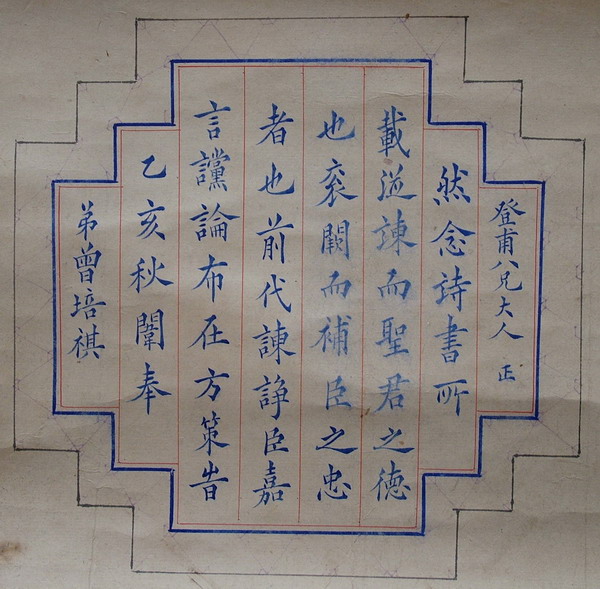 登甫八兄大人 正
然念詩書所
載諫而聖君之德
也袞闕而補臣之忠
者也前代諫諍臣嘉
言讜論布在方策旹
乙亥秋闈奉
弟曾培祺